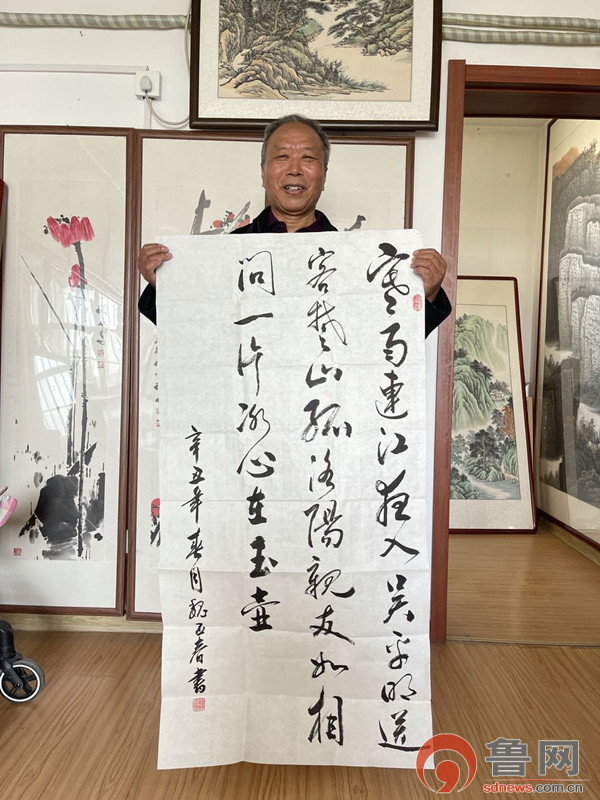 寒雨連江夜入吳平明送
客楚山孤洛陽親友如相
問一片冰心在玉壺
辛丑年春月魏玉春書
鲁网
sdnews.com.cn